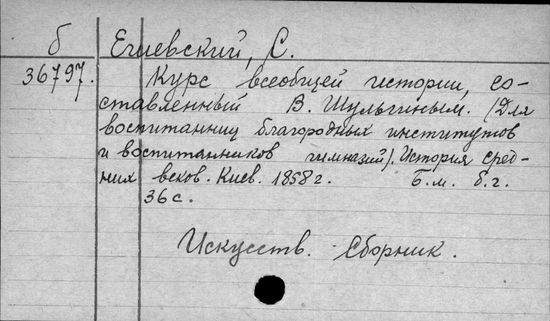 б Ешевский, С.
36797. Курс всеобщей истории, со-
ставленный В. Шульгиным. (Для
воспитанниц благородных институтов
и воспитанников гимназий). История сред-
них веков. Киев. 1858 г. Б.м. б.г.
36 с.
Искусств. Сборник.